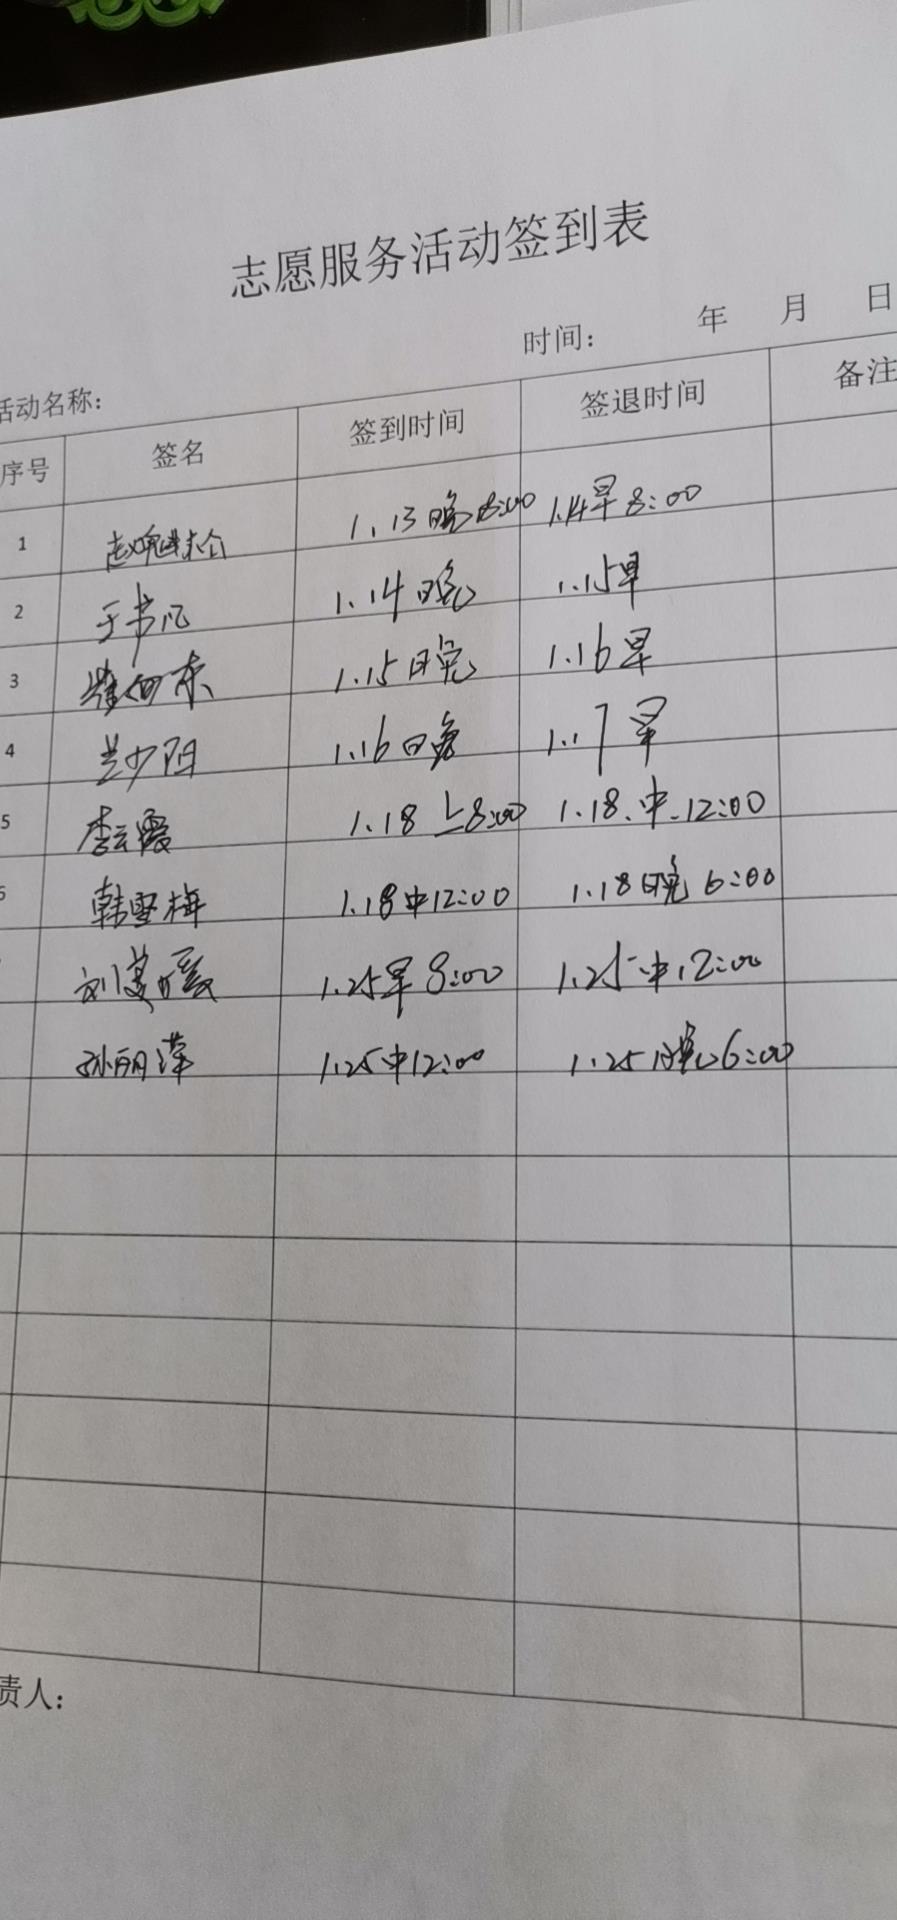 志愿服务活动签到表
时间： 年 月 日
活动名称：
序号 签名 签到时间 签退时间 备注
1 1.13晚8:00 1.14早8:00
2 于书凡 1.14晚 1.15早
3 1.15晚 1.16早
4 兰少阳 1.16晚 1.17早
5 李云霞 1.18上8:00 1.18.中.12:00
韩雪梅 1.18中12:00 1.18晚6:00
刘 1.25早8:00 1.25中12:00
孙丽萍 1.25中12:00 1.25晚6:00
责人：